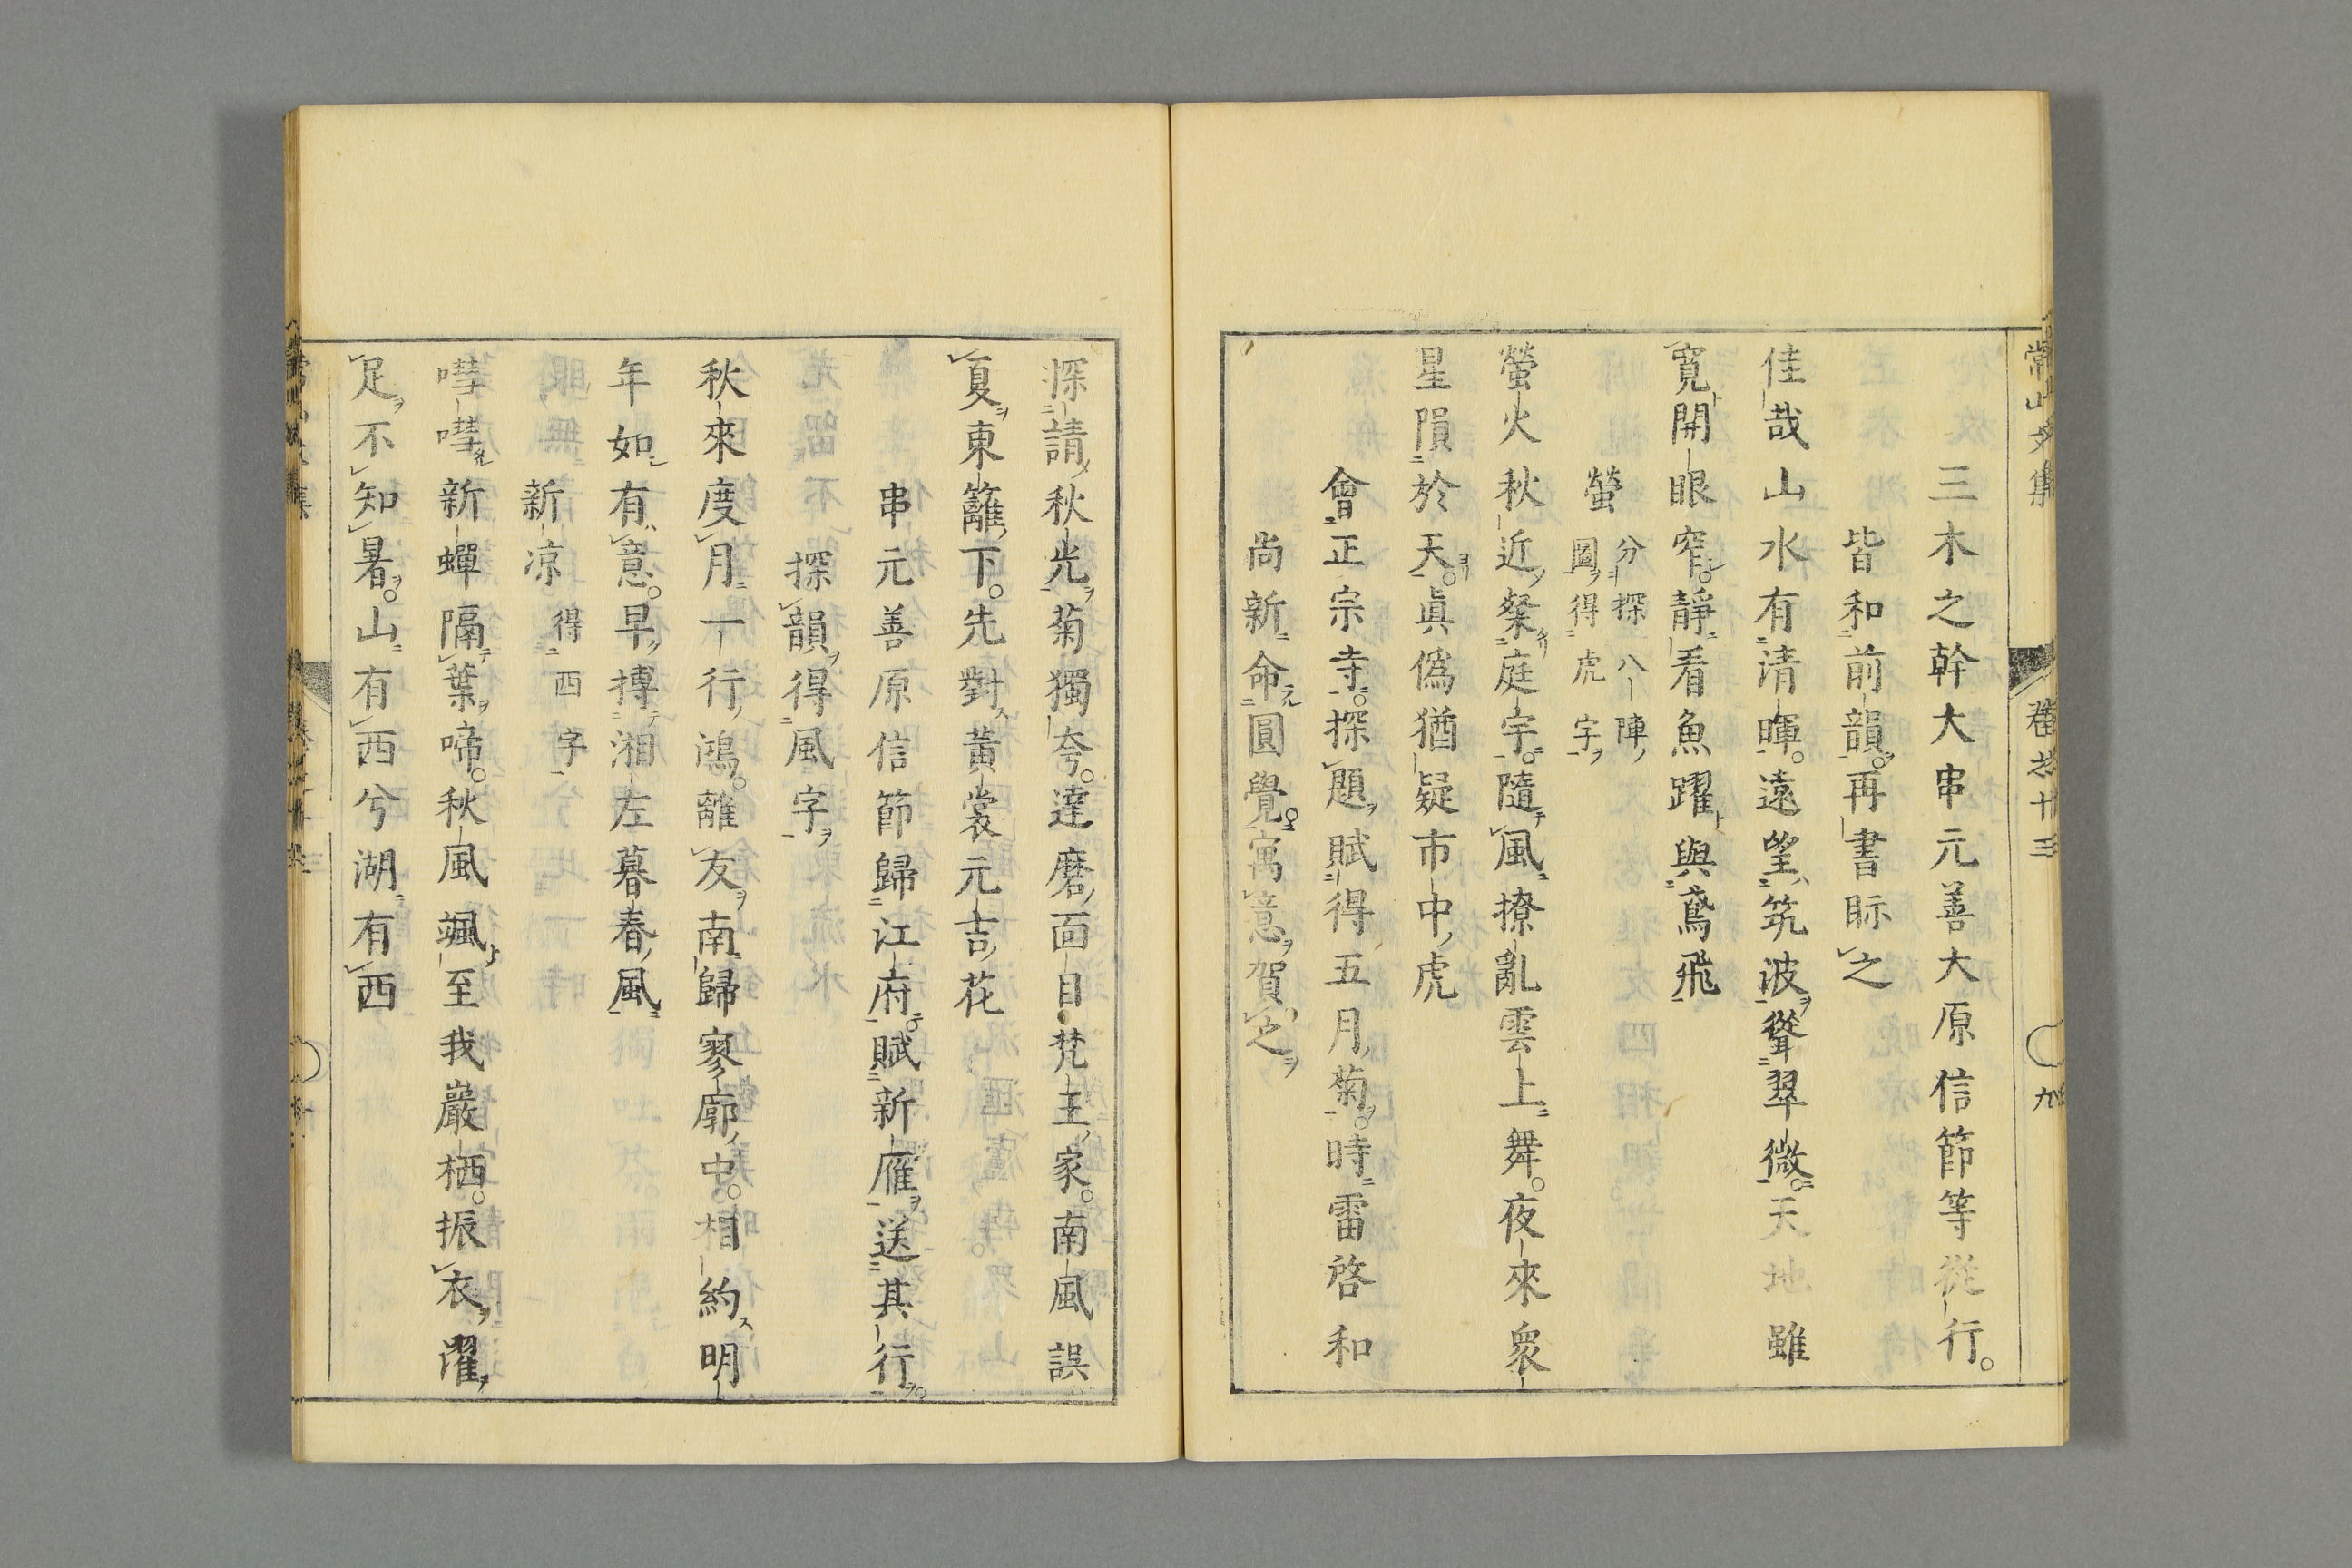 常山文集
卷之十三
九
三木之幹大串元善大原信節等從行
皆和前韻再書眎之
佳哉山水有清暉遠望筑波聳翠微天地雖
寬開眼窄靜看魚躍與鳶飛
螢
分探八陣
圖得虎字
螢火秋近粲庭宇隨風撩亂雲上舞夜來衆
星隕於天眞僞猶疑市中虎
會正宗寺探題賦得五月菊時雷啓和
尚新命圓覺寓意賀之
探請秋光菊獨夸達磨面目梵王家南風誤
夏東籬下先對黃裳元吉花
串元善原信節歸江府賦新雁送其行
探韻得風字
秋來度月一行鴻離友南歸寥廓中相約明
年如有意早摶湘左暮春風
新凉
得西字
嘒嘒新蟬隔葉啼秋風颯至我巖栖振衣濯
足不知暑山有西兮湖有西